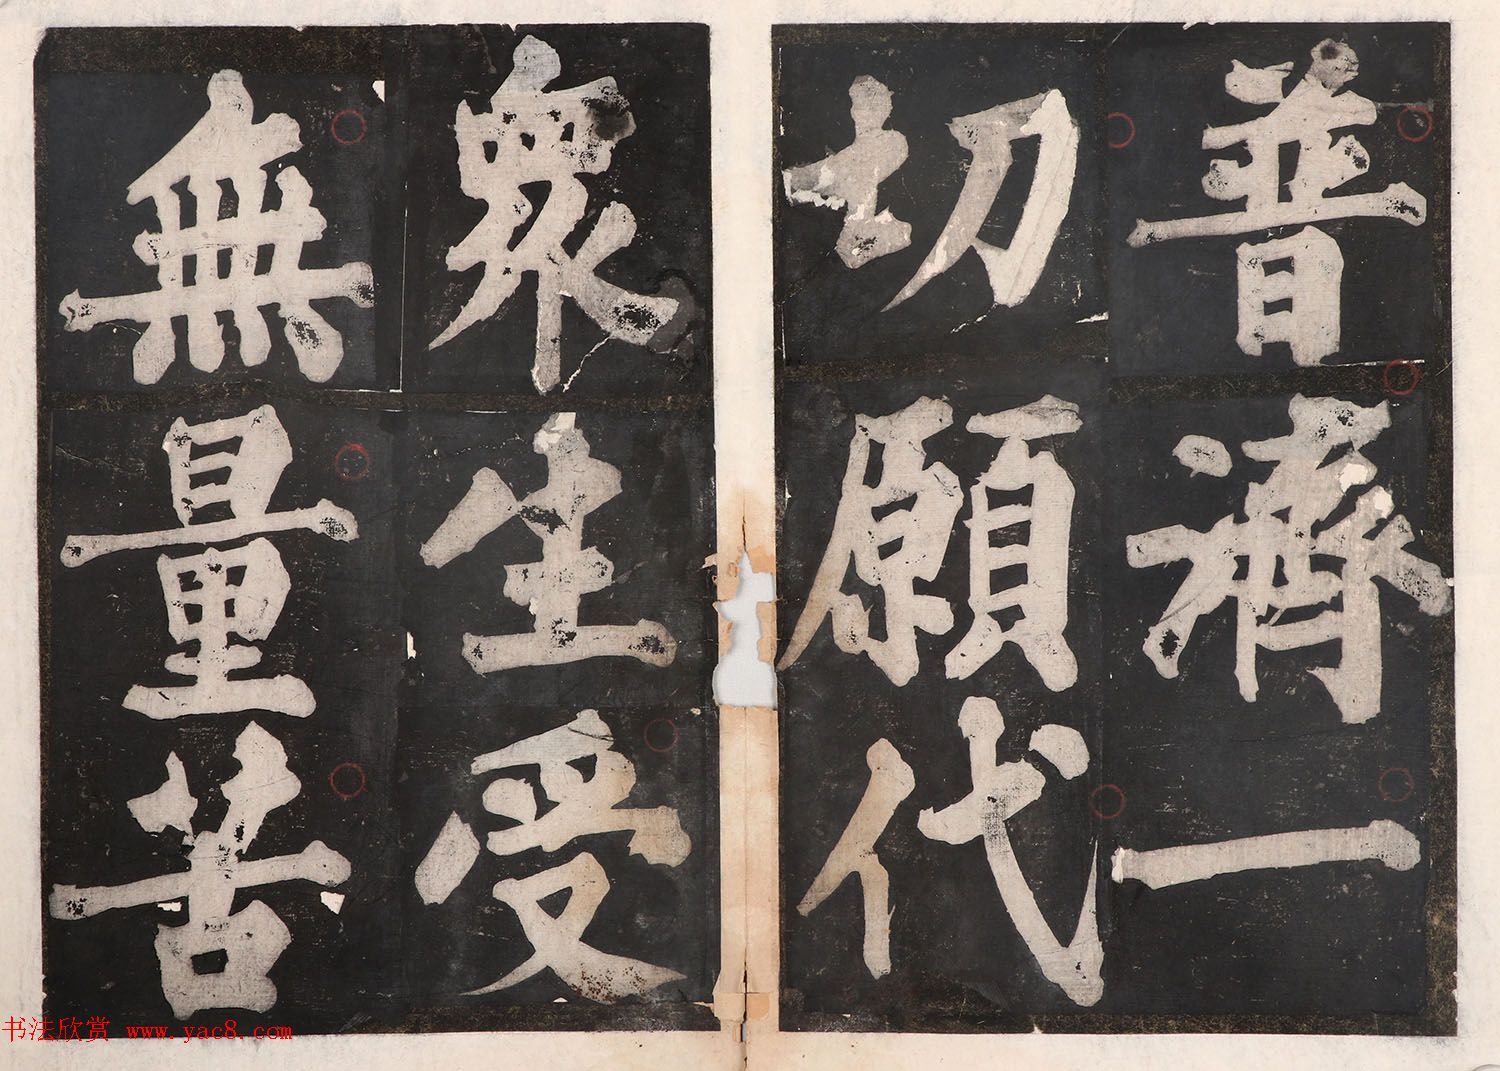 普濟一
切願代
衆生受
無量苦
书法欣赏 www.yac8.com